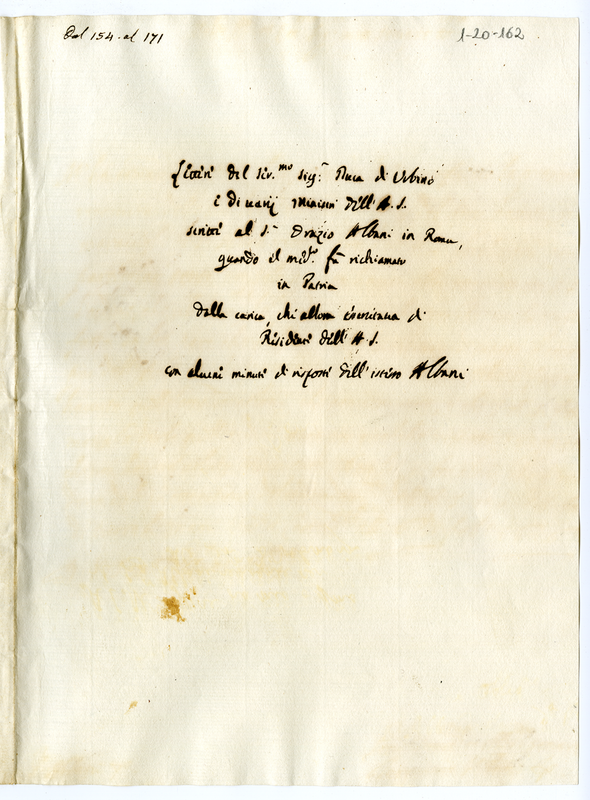 Dal 154. al 171
1-20-162
Lettere del Ser.mo Sig.r Duca di Urbino
e di varij Ministri dell'A. S.
scritte al S.r Orazio Albani in Roma,
quando il med.º fu richiamato
in Patria
dalla carica, che allora esercitava di
Residente dell'A. S.
con alcune minute di risposte dell'istesso Albani